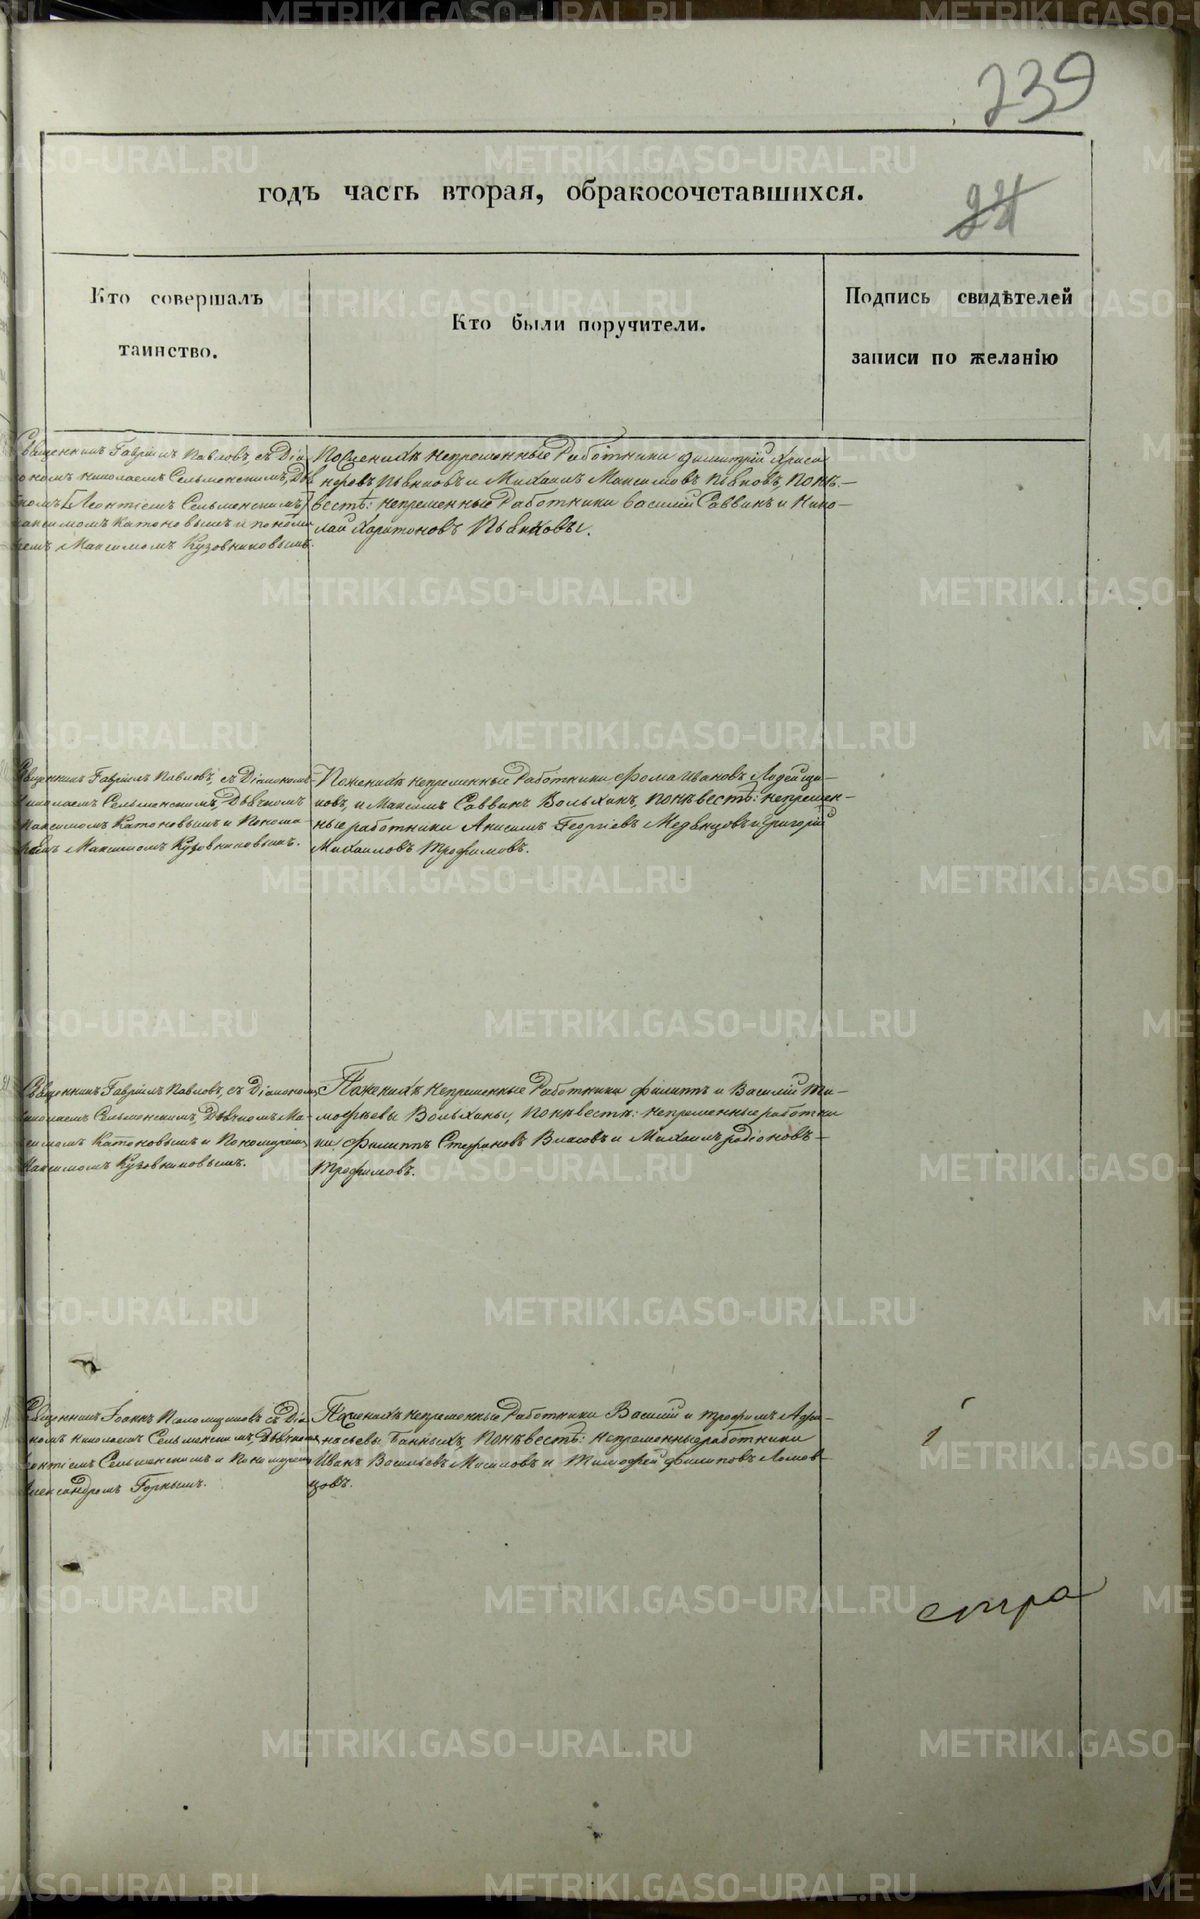 239
годъ часть вторая, обракосочставшихся.
24
Кто совершалъ
таинство.
Кто были поручители.
Подпись свидѣтелей
записи по желанію
Священникъ Гавріилъ Павловъ, съ Діа-
кономъ Николаемъ Сельменскимъ, Дья-
Леонтіемъ Сельменскимъ
Максимомъ Катоновымъ и понома-
ремъ Максимомъ Кузовниковымъ.
По женихѣ непременные Работники Димитрій
и Михаилъ Максимовъ Пьянковъ, по не-
вестѣ: непременные Работники Василий Саввинъ и Нико-
лай Харитоновъ Пьянковы.
Священникъ Гавріилъ Павловъ, съ Діакономъ
Николаемъ Сельменскимъ, Дьячкомъ
Максимомъ Катоновымъ и Понома-
ремъ Максимомъ Кузовниковымъ.
По женихѣ непременные Работники Фома Ивановъ
и Максимъ Саввинъ Волыхинъ, по невестѣ: непремен-
ные работники Анисимъ Георгіевъ Медвѣдцовъ и Григорій
Михаиловъ Трофимовъ.
Священникъ Гавріилъ Павловъ, съ Діакономъ
Николаемъ Сельменскимъ, Дьячкомъ Ма-
ксимомъ Катоновымъ и Пономаремъ
Максимомъ Кузовниковымъ.
По женихѣ непременные Работники Филиппъ и Василій Ти-
мофѣевы Волыхины, по невестѣ: непременные работни
ки Филиппъ Стефановъ Власовъ и Михаилъ родіоновъ
Трофимовъ.
Священникъ Іоаннъ Псаломщиковъ съ Діа-
кономъ Николаемъ Сельменскимъ, Дьячкомъ
Леонтіемъ Сельменскимъ и Пономаремъ
Александромъ Горнымъ.
По женихѣ непременные Работники Василій и трофимъ Афа-
насьевы Банныхъ, по невестѣ: непременные работники
Иванъ Васильевъ и Тимофей Филиповъ Ломов-
цовъ.
METRIKI.GASO-URAL.RU